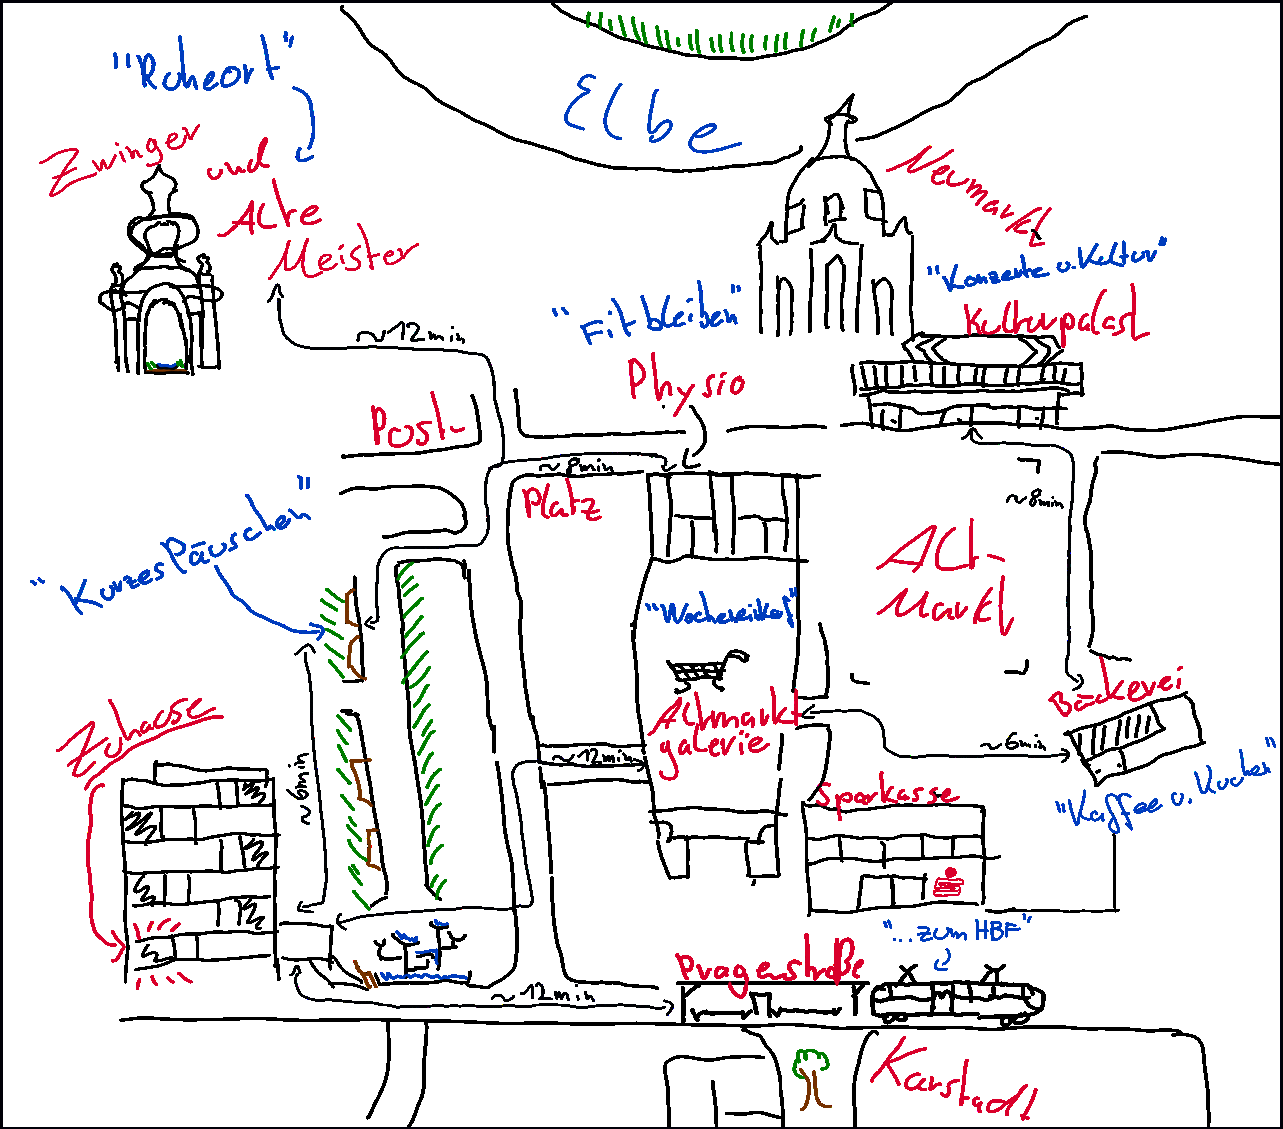 "Ruheort"
Zwinger
und
Alte
Meister
Elbe
Neumarkt
"Konzerte u. Kultur"
Kulturpalast
"Fit bleiben"
Physio
~12min
Post-
Platz
~8min
~8min
"Kurzes Päuschen"
Alt-
Markt
"Wocheneinkauf"
Altmarkt
galerie
Bäckerei
~6min
"Kaffee u. Kuchen"
Zuhause
~6min
~12min
Sparkasse
"...zum HBF"
Pragerstraße
~12min
Karstadt